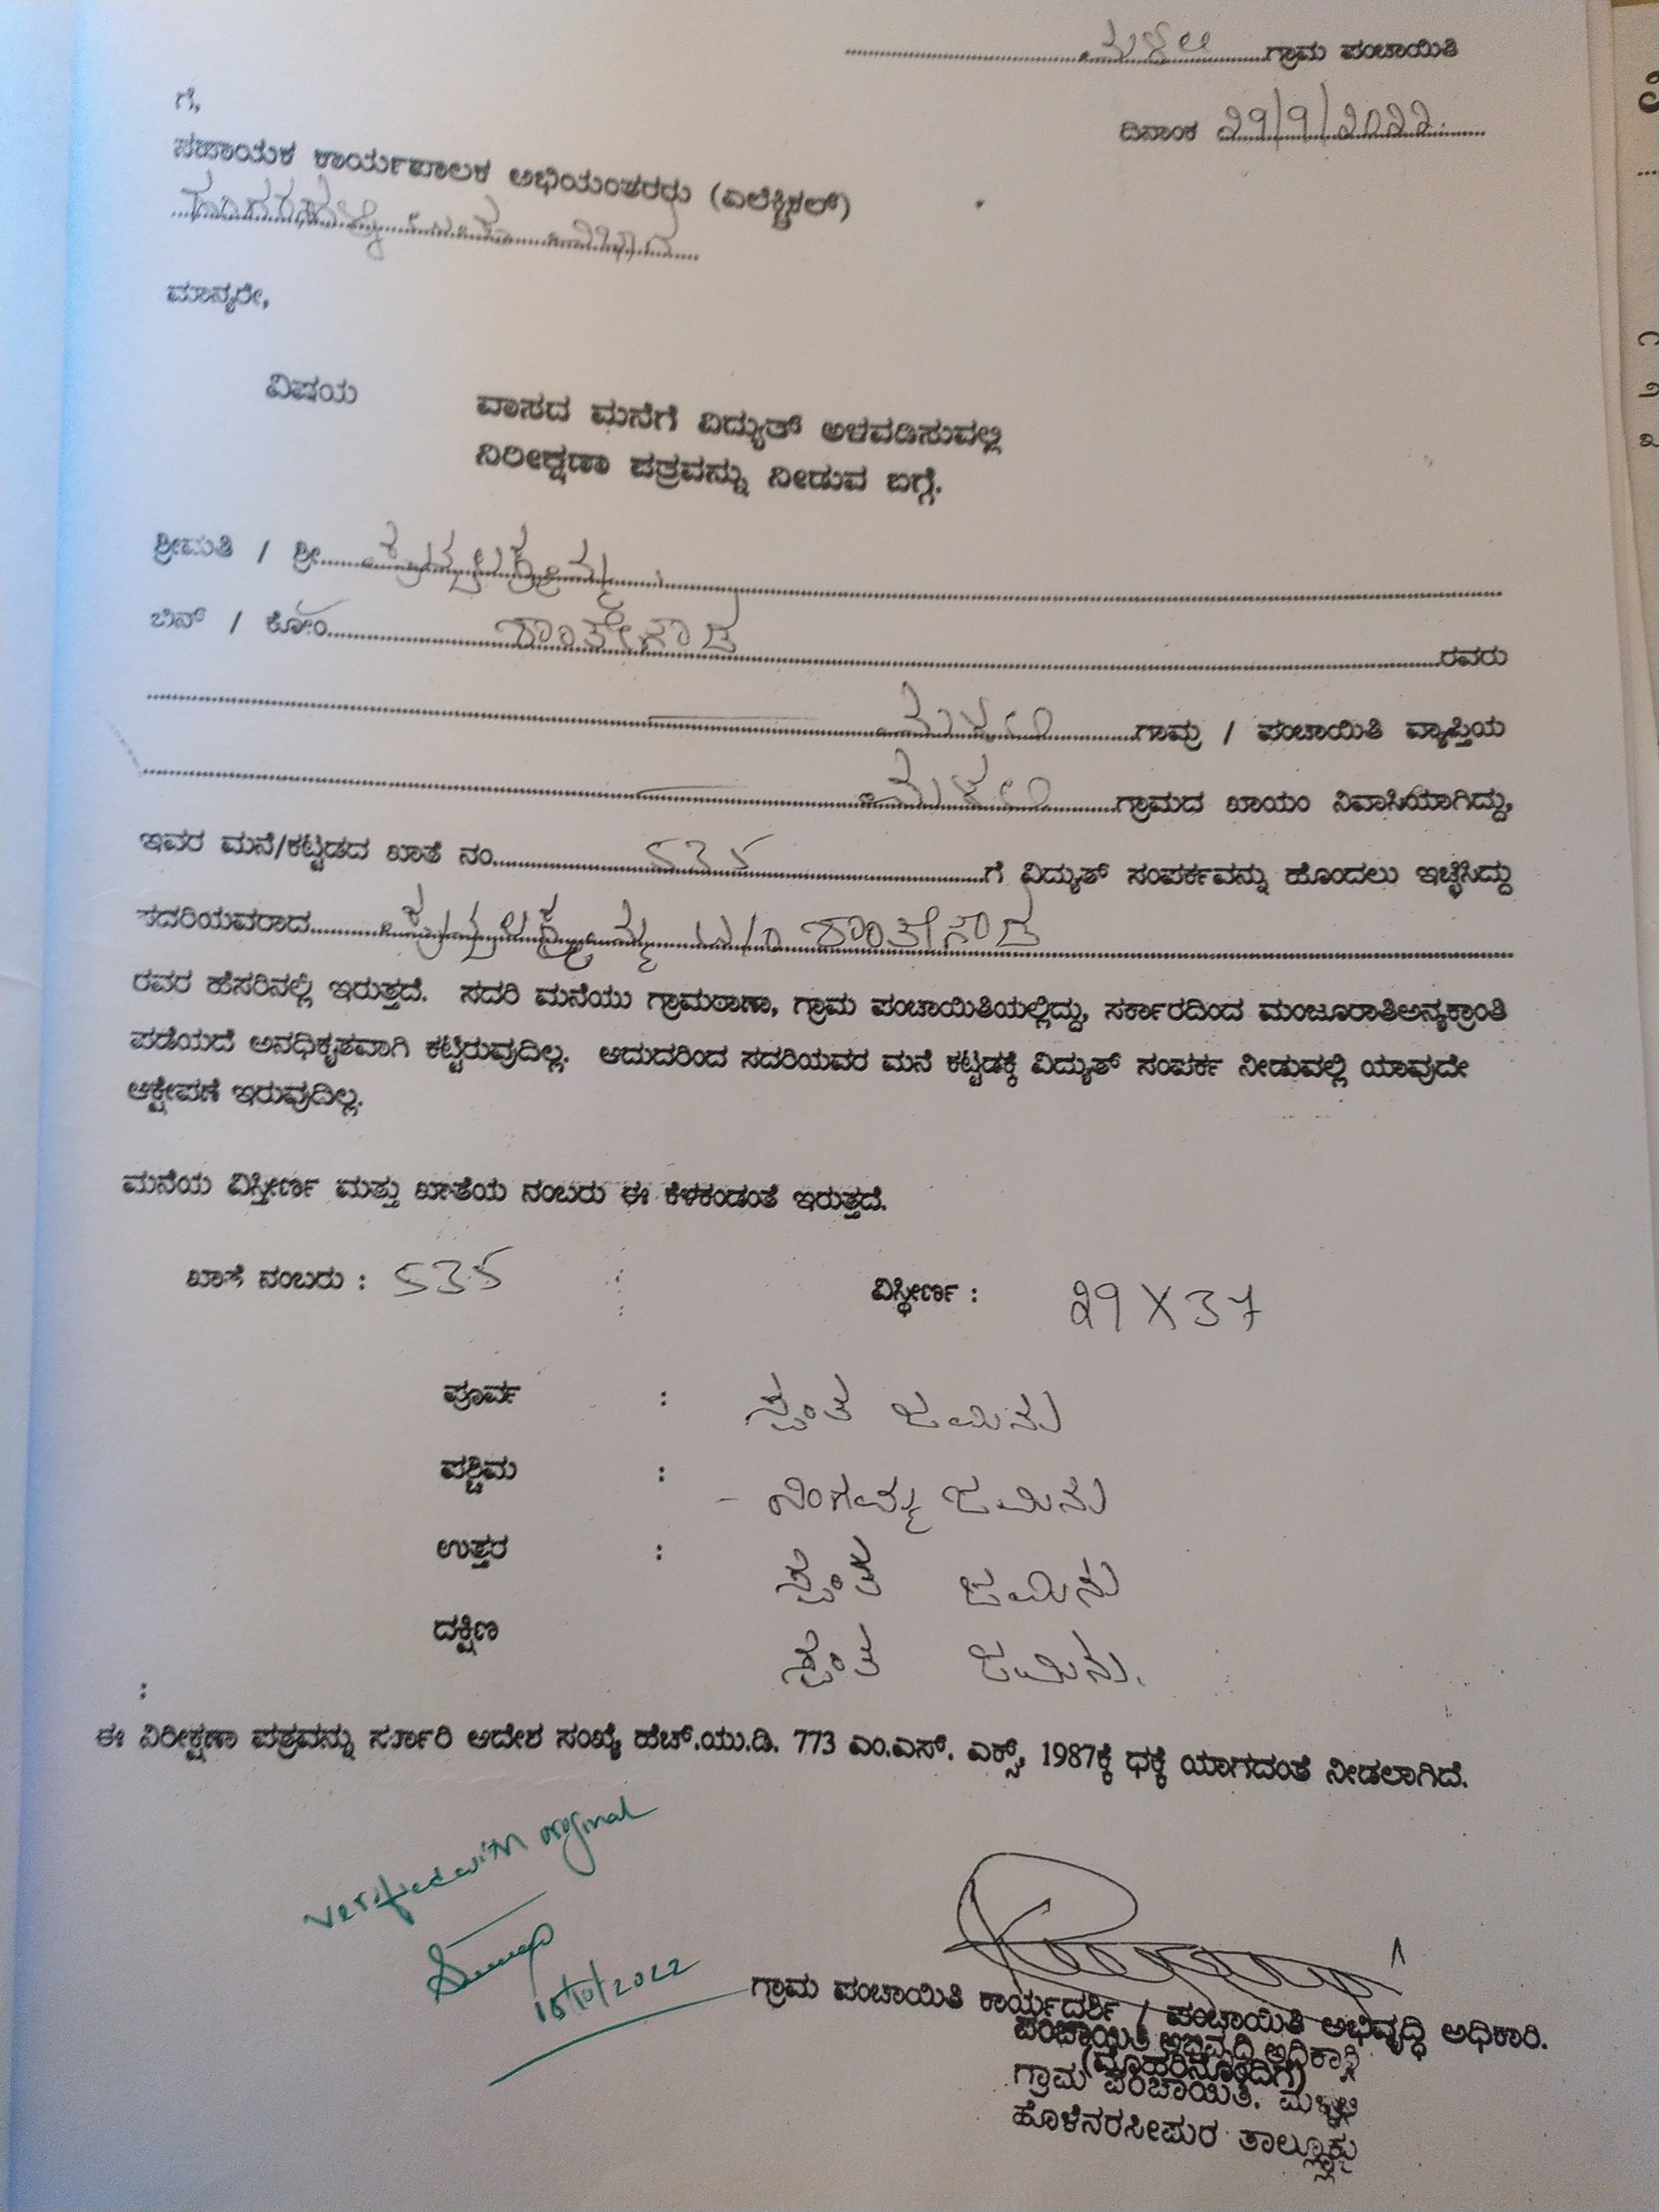 ಮಳಲಿ ಗ್ರಾಮ ಪಂಚಾಯಿತಿ
ದಿನಾಂಕ 29/9/2022
ಗೆ,
ಸಹಾಯಕ ಕಾರ್ಯಪಾಲಕ ಅಭಿಯಂತರರು (ಎಲೆಕ್ಟ್ರಿಕಲ್)
ಮಾನ್ಯರೇ,
ವಿಷಯ ವಾಸದ ಮನೆಗೆ ವಿದ್ಯುತ್ ಅಳವಡಿಸುವಲ್ಲಿ
ನಿರೀಕ್ಷಣಾ ಪತ್ರವನ್ನು ನೀಡುವ ಬಗ್ಗೆ.
ಶ್ರೀಮತಿ / ಶ್ರೀ
ಬಿನ್ / ಕೋಂ ಶಾಂತೇಗೌಡ ರವರು
ಮಳಲಿ ಗ್ರಾಮ / ಪಂಚಾಯಿತಿ ವ್ಯಾಪ್ತಿಯ
ಮಳಲಿ ಗ್ರಾಮದ ಖಾಯಂ ನಿವಾಸಿಯಾಗಿದ್ದು,
ಇವರ ಮನೆ/ಕಟ್ಟಡದ ಖಾತೆ ನಂ 535 ಗೆ ವಿದ್ಯುತ್ ಸಂಪರ್ಕವನ್ನು ಹೊಂದಲು ಇಚ್ಛಿಸಿದ್ದು
ಸದರಿಯವರಾದ ಶಾಂತೇಗೌಡ
ರವರ ಹೆಸರಿನಲ್ಲಿ ಇರುತ್ತದೆ. ಸದರಿ ಮನೆಯು ಗ್ರಾಮಠಾಣಾ, ಗ್ರಾಮ ಪಂಚಾಯಿತಿಯಲ್ಲಿದ್ದು, ಸರ್ಕಾರದಿಂದ ಮಂಜೂರಾತಿಅನ್ಯಕ್ರಾಂತಿ
ಪಡೆಯದೆ ಅನಧಿಕೃತವಾಗಿ ಕಟ್ಟಿರುವುದಿಲ್ಲ. ಆದುದರಿಂದ ಸದರಿಯವರ ಮನೆ ಕಟ್ಟಡಕ್ಕೆ ವಿದ್ಯುತ್ ಸಂಪರ್ಕ ನೀಡುವಲ್ಲಿ ಯಾವುದೇ
ಆಕ್ಷೇಪಣೆ ಇರುವುದಿಲ್ಲ.
ಮನೆಯ ವಿಸ್ತೀರ್ಣ ಮತ್ತು ಖಾತೆಯ ನಂಬರು ಈ ಕೆಳಕಂಡಂತೆ ಇರುತ್ತದೆ.
ಖಾತೆ ನಂಬರು : 535 ವಿಸ್ತೀರ್ಣ : 29 X 37
ಪೂರ್ವ : ಸ್ವಂತ ಜಮೀನು
ಪಶ್ಚಿಮ : - ನಿಂಗಮ್ಮ ಜಮೀನು
ಉತ್ತರ : ಸ್ವಂತ ಜಮೀನು
ದಕ್ಷಿಣ ಸ್ವಂತ ಜಮೀನು.
:
ಈ ನಿರೀಕ್ಷಣಾ ಪತ್ರವನ್ನು ಸರ್ಕಾರಿ ಆದೇಶ ಸಂಖ್ಯೆ ಹೆಚ್.ಯು.ಡಿ. 773 ಎಂ.ಎಸ್. ಎಕ್ಸ್, 1987ಕ್ಕೆ ಧಕ್ಕೆ ಯಾಗದಂತೆ ನೀಡಲಾಗಿದೆ.
verified with original
15/10/2022
ಗ್ರಾಮ ಪಂಚಾಯಿತಿ ಕಾರ್ಯದರ್ಶಿ / ಪಂಚಾಯಿತಿ ಅಭಿವೃದ್ಧಿ ಅಧಿಕಾರಿ.
ಪಂಚಾಯಿತಿ ಅಭಿವೃದ್ಧಿ ಅಧಿಕಾರಿ
(ಮೊಹರಿನೊಂದಿಗೆ)
ಗ್ರಾಮ ಪಂಚಾಯಿತಿ. ಮಳಲಿ
ಹೊಳೆನರಸೀಪುರ ತಾಲ್ಲೂಕು